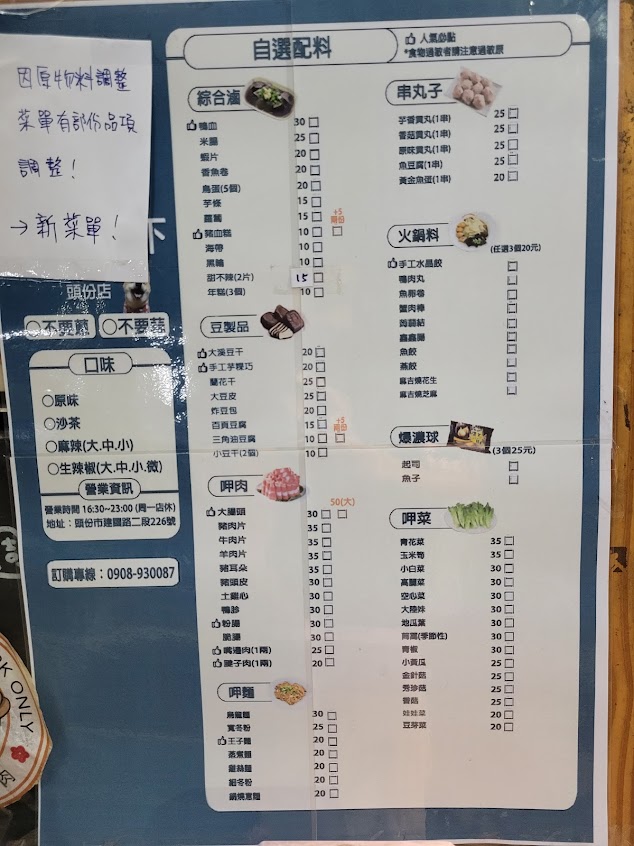 因原物料調整
菜單有部份品項
調整!
→新菜單!
下
頭份店
○不要蔥 ○不要蒜
口味
○原味
○沙茶
○麻辣(大.中.小)
○生辣椒(大.中.小.微)
營業資訊
營業時間 16:30~23:00 (周一店休)
地址：頭份市建國路二段226號
訂購專線：0908-930087
K ONLY
自選配料
人氣必點
*食物過敏者請注意過敏原
綜合滷
鴨血 30
米腸 25
蝦片 20
香魚卷 20
鳥蛋(5個) 20
芋條 15
蘿蔔 15
+5
豬血糕 10
海帶 10
黑輪 10
甜不辣(2片) 15
年糕(3個) 10
豆製品
大溪豆干 20
手工芋粿巧 20
蘭花干 25
大豆皮 25
炸豆包 20
百頁豆腐 15
+5
三角油豆腐 10
小豆干(2個) 10
呷肉
50(大)
大腸頭 30
豬肉片 35
牛肉片 35
羊肉片 35
豬耳朵 35
豬頭皮 30
土雞心 30
鴨胗 30
粉腸 30
脆腸 30
嘴邊肉(1兩) 25
腱子肉(1兩) 20
呷麵
烏龍麵 30
寬冬粉 25
王子麵 20
蒸煮麵 20
雞絲麵 20
細冬粉 20
鍋燒意麵 20
串丸子
芋香貢丸(1串) 25
香菇貢丸(1串) 25
原味貢丸(1串) 25
魚豆腐(1串) 25
黃金魚蛋(1串) 20
火鍋料
(任選3個20元)
手工水晶餃
鴨肉丸
魚卵卷
蟹肉棒
蒟蒻結
鑫鑫腸
魚餃
燕餃
麻吉燒花生
麻吉燒芝麻
爆濃球
(3個25元)
起司
魚子
呷菜
青花菜 35
玉米筍 35
小白菜 30
高麗菜 30
空心菜 30
大陸妹 30
地瓜葉 30
茼蒿(季節性) 30
青椒 30
小黃瓜 25
金針菇 25
秀珍菇 25
香菇 25
娃娃菜 20
豆芽菜 20